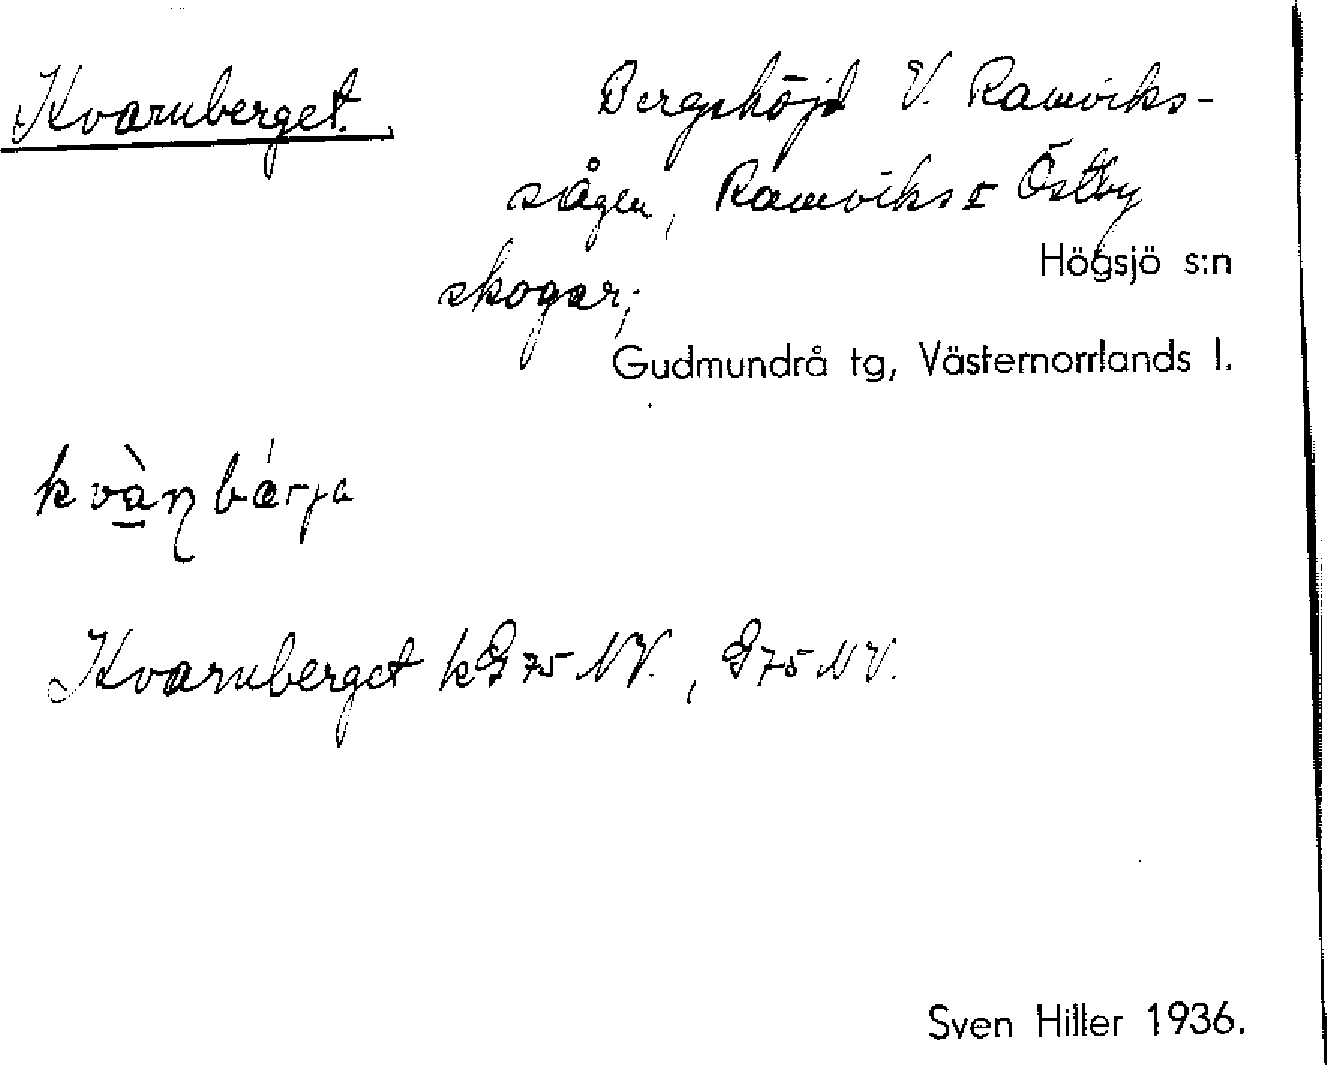 Kvarnberget. Bergshöjd V. Ramviks-
sågen, Ramviks o Östby
skogar;
Högsjö s:n
Gudmundrå tg, Västernorrlands l.
kvàn̠bárja
Kvarnberget kG 75 NV., G 75 NV.
Sven Hiller 1936.